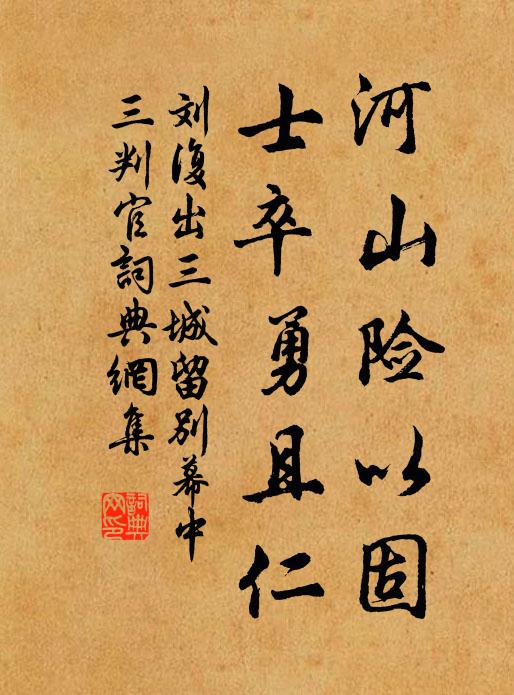 河山险以固
士卒勇且仁
刘復出三城留别幕中
三判官詞典網集
詞典网印